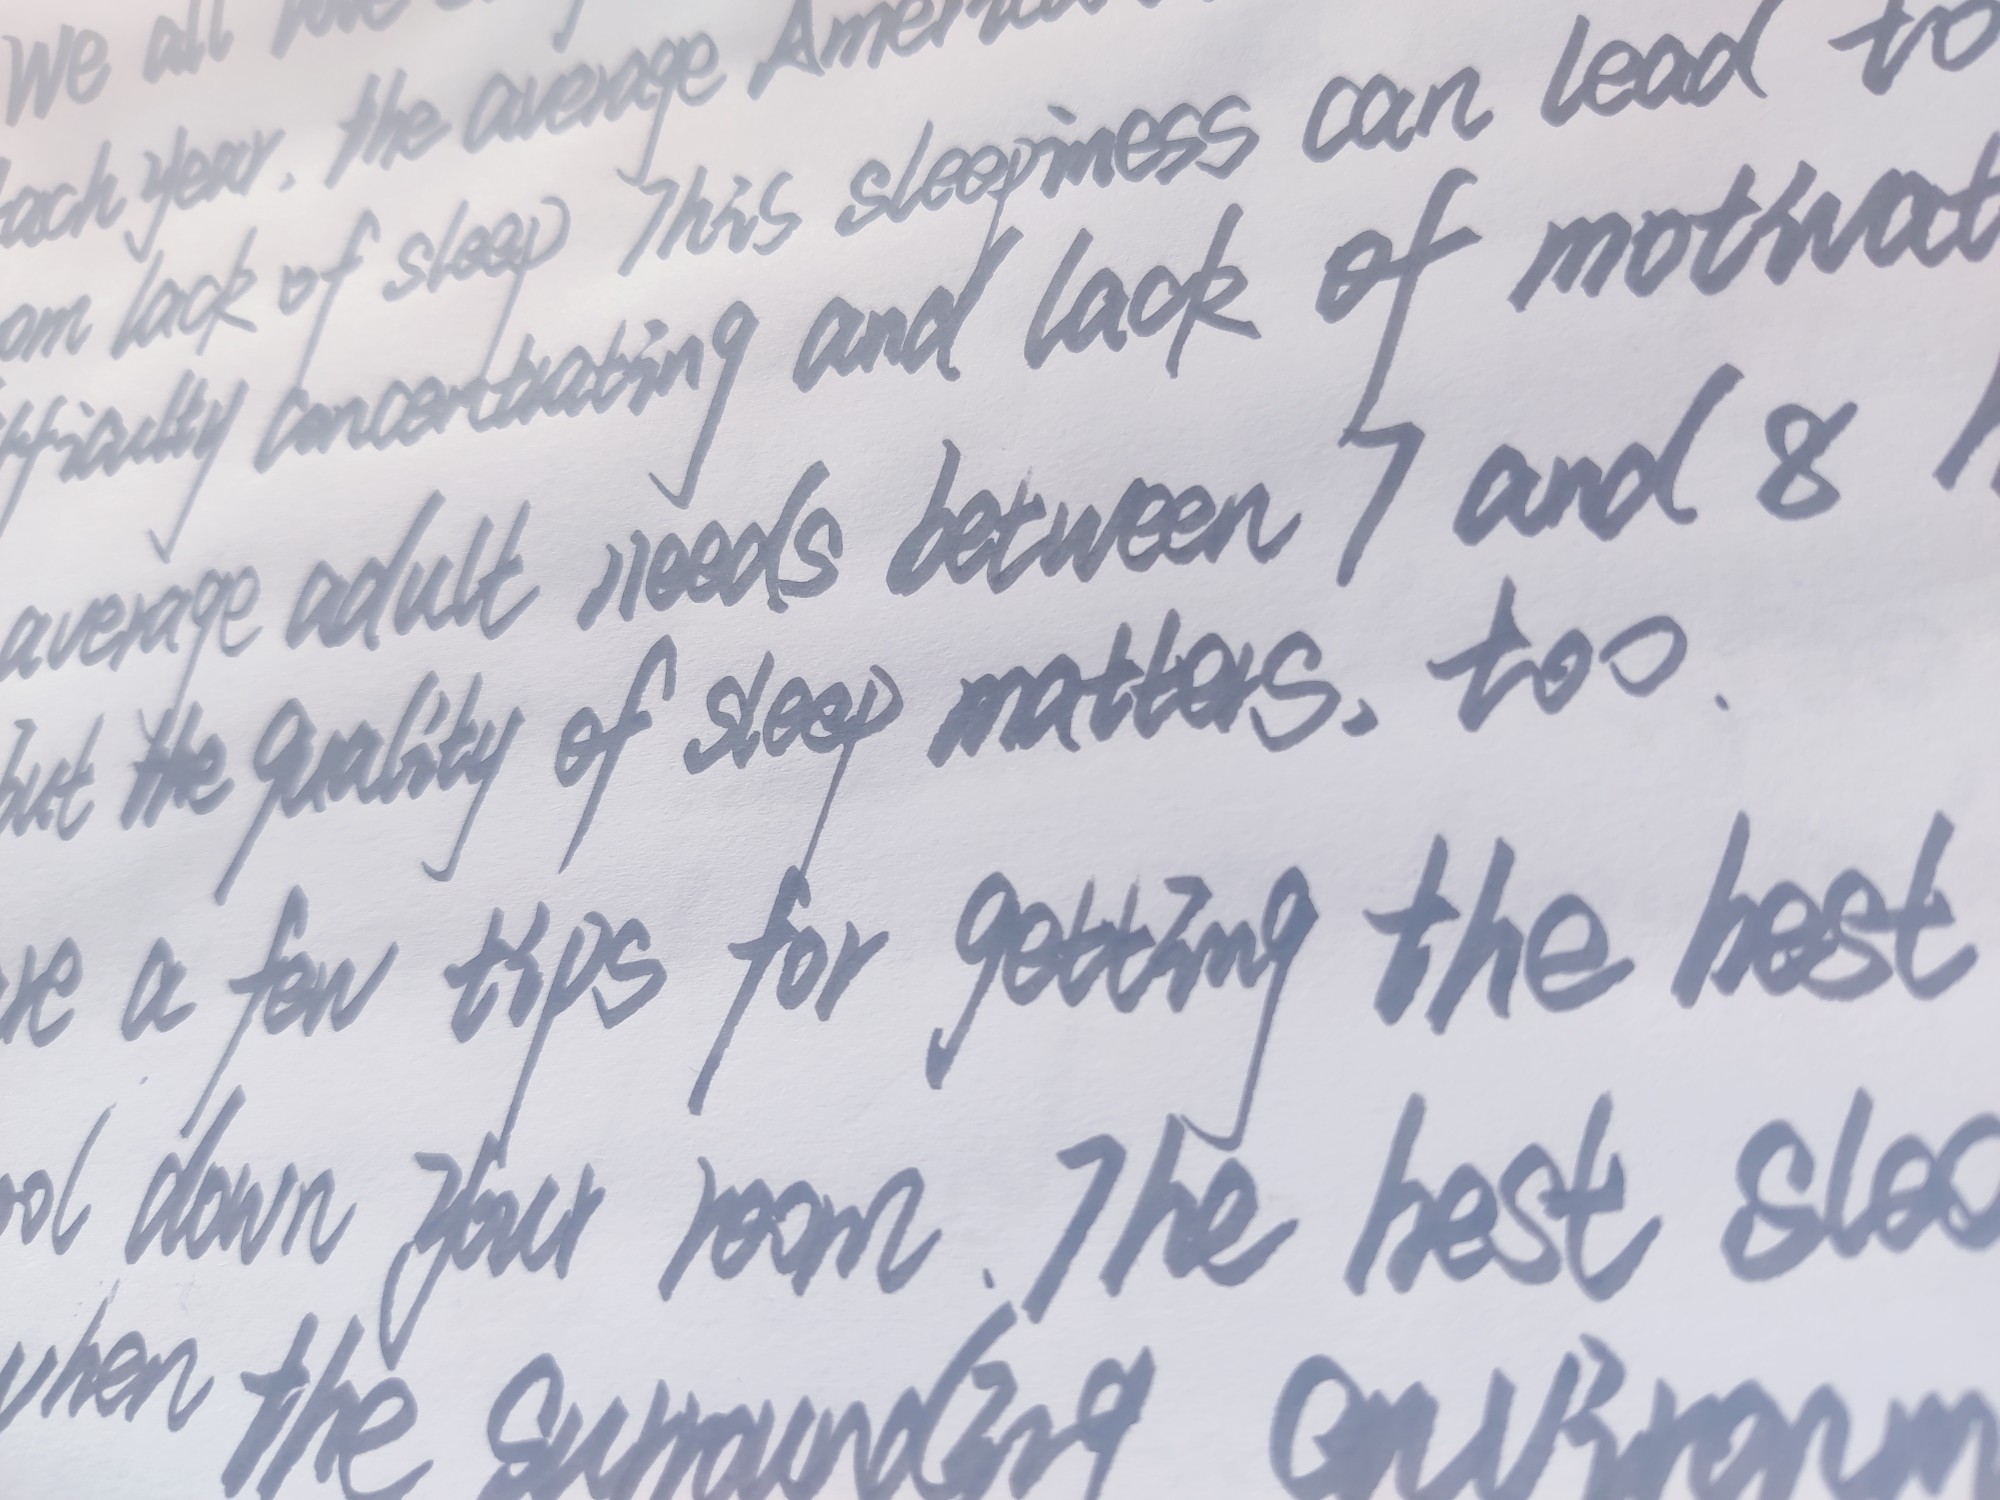 We all have
Each year, the average American
om lack of sleep This sleepiness can lead to
ifficulty concentrating and lack of motivat
average adult needs between 7 and 8 h
but the quality of sleep matters, too.
are a few tips for getting the best
ool down your room. The best slee
when the surrounding environm